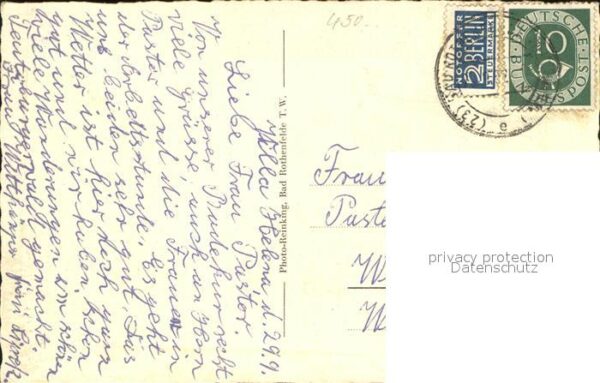 450.-
Villa Helena d. 29.9.
Liebe Frau Pastor.
Von unserer Badekur recht
viele Grüsse, auch an Herrn
Pastor und die Frauen in
der Arbeitsstunde. Es geht
uns beiden sehr gut. Das
Wetter ist hier doch ganz
gut und wir haben schon
viele Wanderungen im schönen
Teutoburgerwald gemacht.
Frau
Photo-Reinking, Bad Rothenfelde T. W.
NOTOPFER
2 BERLIN
STEUERMARKE
DEUTSCHE
BUNDESPOST
(23)
e
Frau
Pasto
W
W
privacy protection
Datenschutz